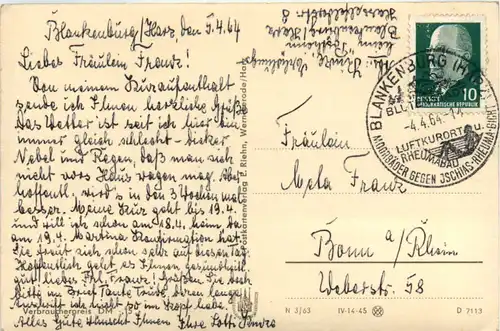 Blankenburg/Harz, den 5.4.64
Liebes Fräulein Franz!
Von meinem Kuraufenthalt
sende ich Ihnen herzliche Grüße
Das Wetter ist seit ich hier bin
immer gleich schlecht - dicker
Nebel und Regen, daß man sich
nicht vors Haus wagen mag. Aber
hoffentl. wird's in den 3 Wochen mal
besser. Meine Kur geht bis 19.4.
und will ich schon am 18.4. heim da
am 19.4. Martina Konfirmation hat.
Sie freut sich schon sehr auf diesen Tag.
Hoffentlich geht es Ihnen gesundheitl.
gut liebes Frl. Franz. Grüßen Sie doch
bitte im Brief Tante Trudi
ich nicht so im Kopf habe.
Alles Gute wünscht Ihnen Ihre Lotti
Blankenburg/Harz
Fräulein
Meta Franz
Bonn a/Rhein
Weberstr. 58
10
DEUTSCHE DEMOKRATISCHE REPUBLIK
BLANKENBURG (HARZ)
-4.4.64-14
LUFTKURORT u.
RHEUMABAD
MOORBÄDER GEGEN ISCHIAS-RHEUMA-GICHT
Postkartenverlag E. Riehn, Wernigerode/Harz
Verbraucherpreis DM
N 3/63 IV-14-45 D 7113